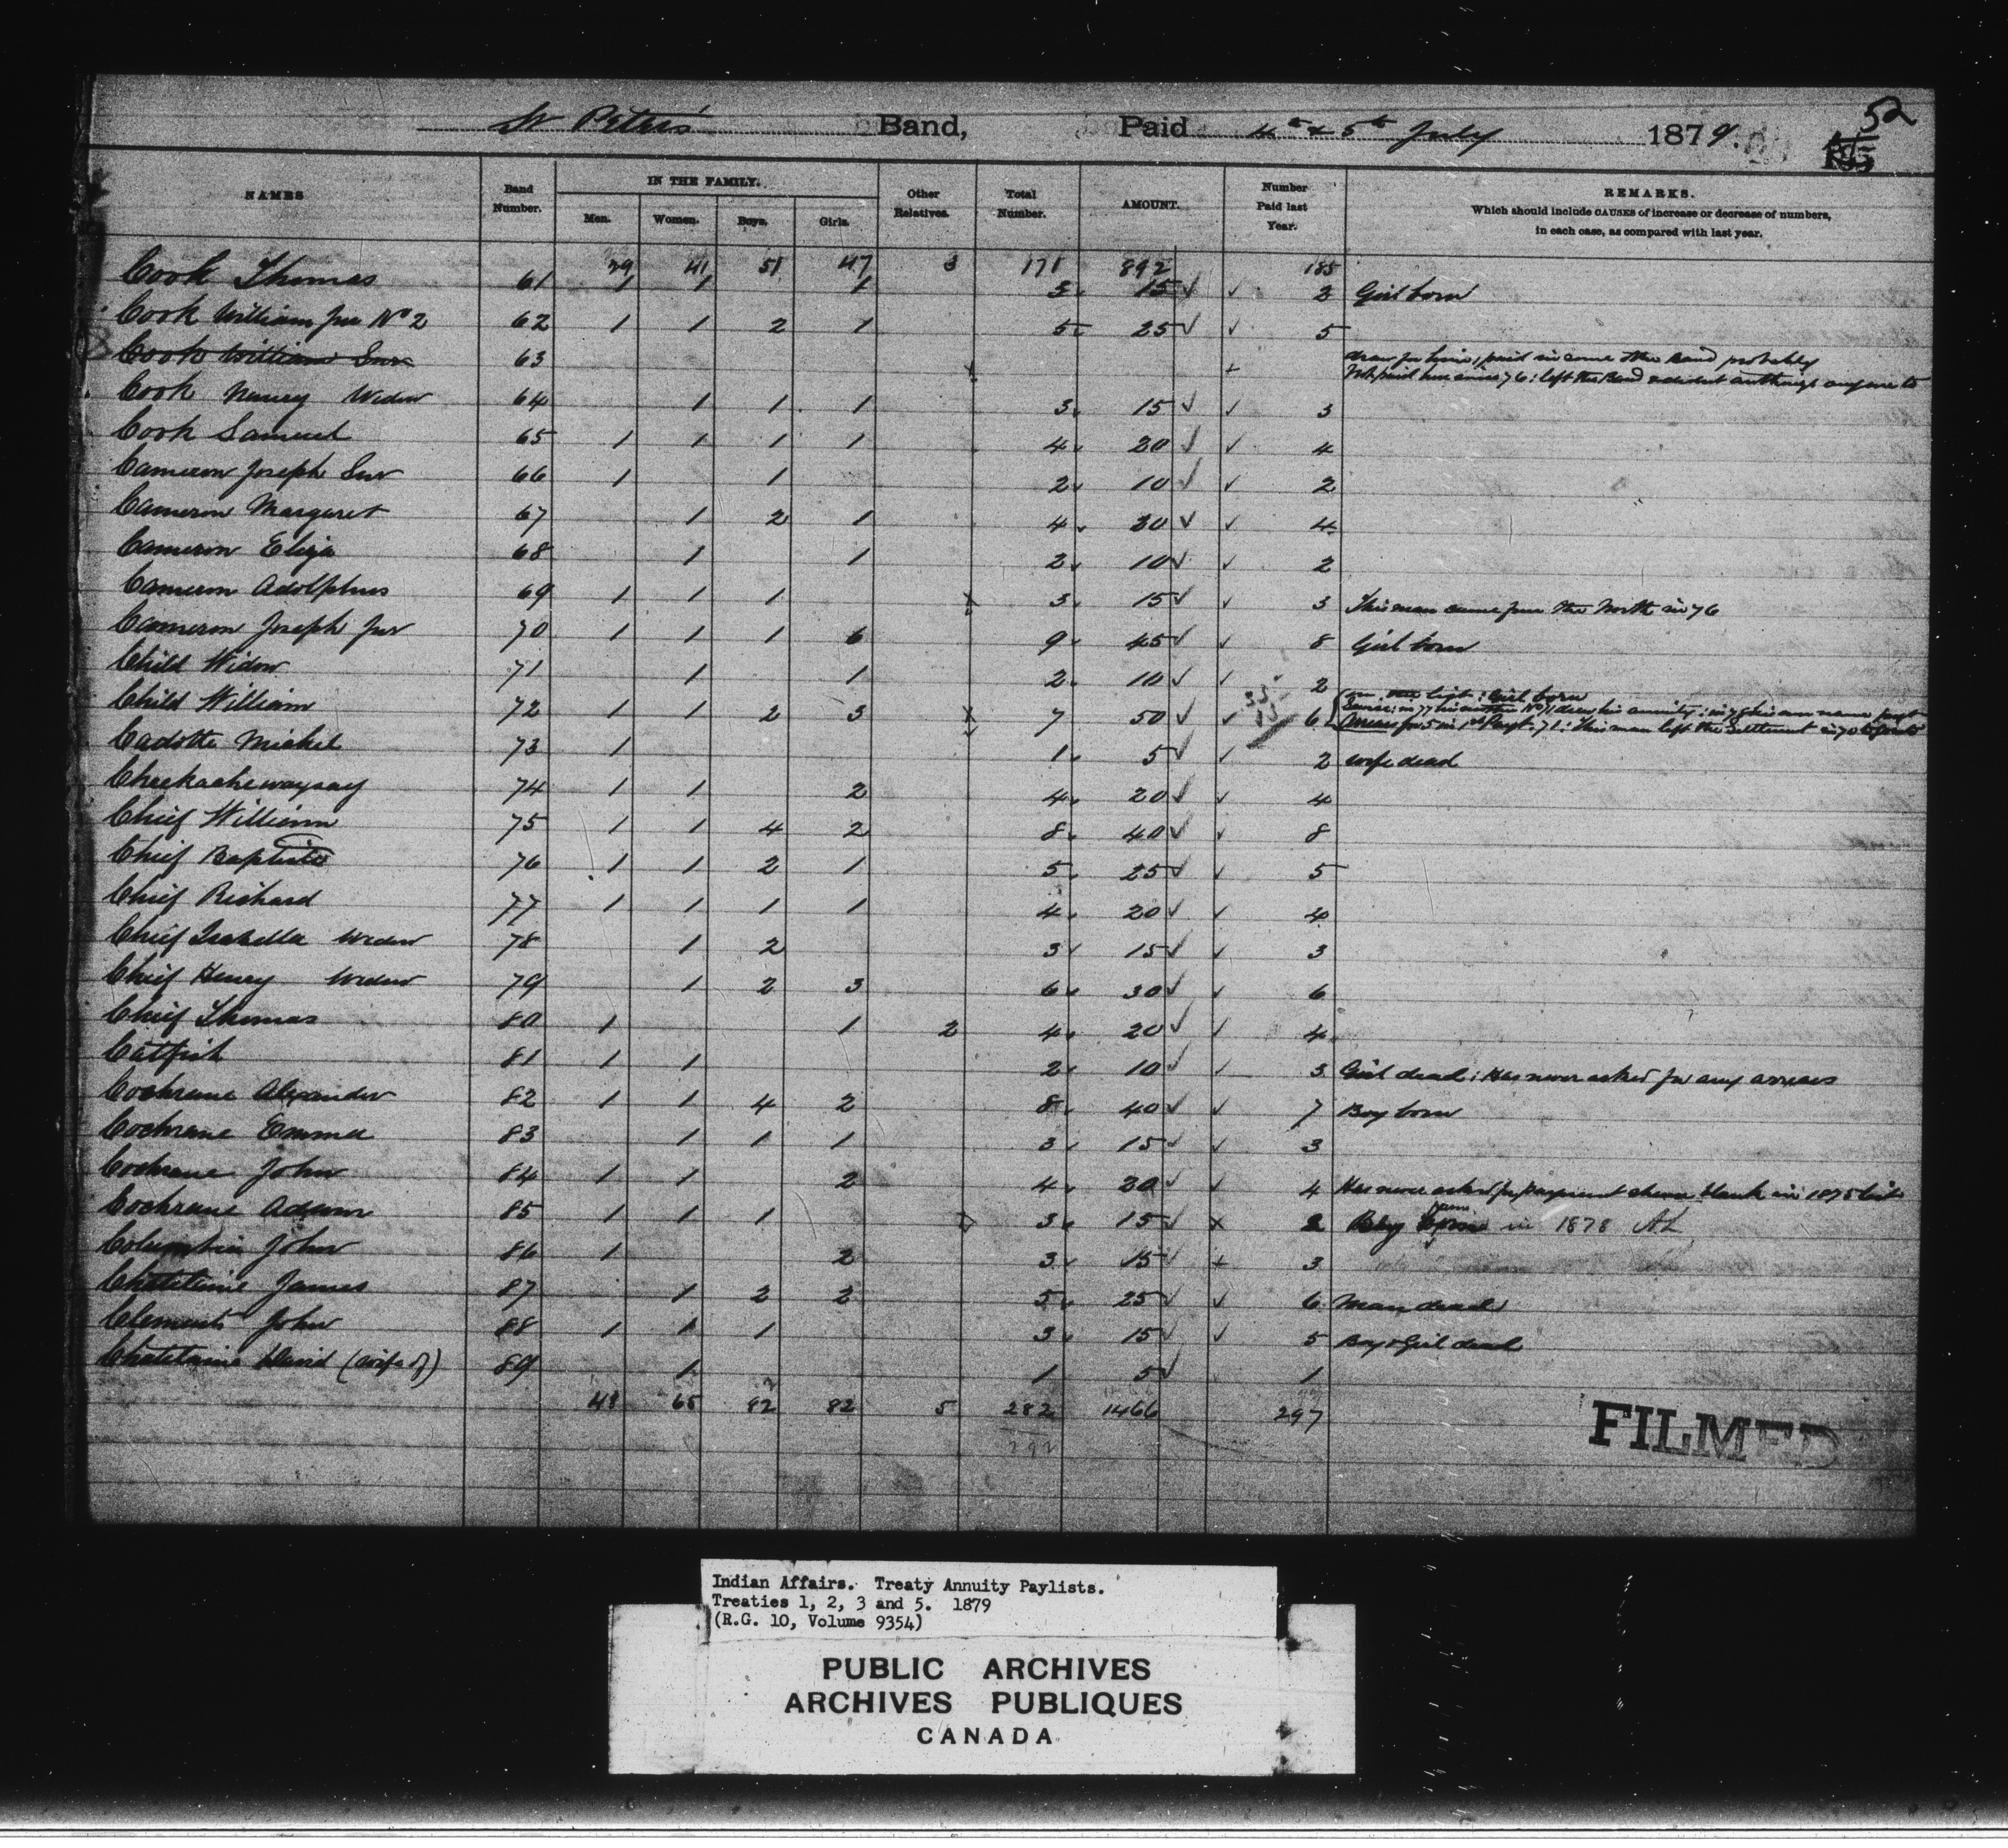 52
St Peter's Band, Paid 4th & 5th July 1879.
NAMES Band Number. IN THE FAMILY. Men. Women. Boys. Girls. Other Relatives. Total Number. AMOUNT. Number Paid last Year. REMARKS.
Which should include CAUSES of increase or decrease of numbers,
in each case, as compared with last year.
39 41 51 47 3 171 892 185
Cook Thomas 61 1 1 1 3 15 2 Girl born
Cook William Jnr No 2 62 1 1 2 1 5 25 5
Cook William Snr 63 Not paid since 76: left the Band & did not authorize anyone to
draw for him, paid in some other Band probably
Cook Nancy Widow 64 1 1 1 3 15 3
Cook Samuel 65 1 1 1 1 4 20 4
Cameron Joseph Snr 66 1 1 2 10 2
Cameron Margaret 67 1 2 1 4 20 4
Cameron Eliza 68 1 1 2 10 2
Cameron Adolphus 69 1 1 1 3 15 3 This man came from the North in 76
Cameron Joseph Jnr 70 1 1 1 6 9 45 8 Girl born
Child Widow 71 1 1 2 10 2
Child William 72 1 1 2 3 7 50 6 Arrears for 5 in 1st Payt. 71: This man left the Settlement in 70
Girl born
Cadotte Michel 73 1 1 5 2 wife dead
Cheekacheewaysay 74 1 1 2 4 20 4
Chief William 75 1 1 4 2 8 40 8
Chief Baptiste 76 1 1 2 1 5 25 5
Chief Richard 77 1 1 1 1 4 20 4
Chief Isabella Widow 78 1 2 3 15 3
Chief Henry Widow 79 1 2 3 6 30 6
Chief Thomas 80 1 1 2 4 20 4
Catfish 81 1 1 2 10 3 Girl dead: Has never asked for any arrears
Cochrane Alexander 82 1 1 4 2 8 40 7 Boy born
Cochrane Emma 83 1 1 1 3 15 3
Cochrane John 84 1 1 2 4 20 4 Has never asked for payment shown blank in 1875 list
Cochrane Adam 85 1 1 1 3 15 2 Boy born in 1878 AL
Columbia John 86 1 2 3 15 3
Chatelaine James 87 1 2 2 5 25 6 Man dead
Clements John 88 1 1 1 3 15 5 Boy & Girl dead
Chatelaine David (wife of) 89 1 1 5 1
48 65 82 82 5 282 1466 297
292
FILMED
Indian Affairs. Treaty Annuity Paylists.
Treaties 1, 2, 3 and 5. 1879
(R.G. 10, Volume 9354)
PUBLIC ARCHIVES
ARCHIVES PUBLIQUES
CANADA